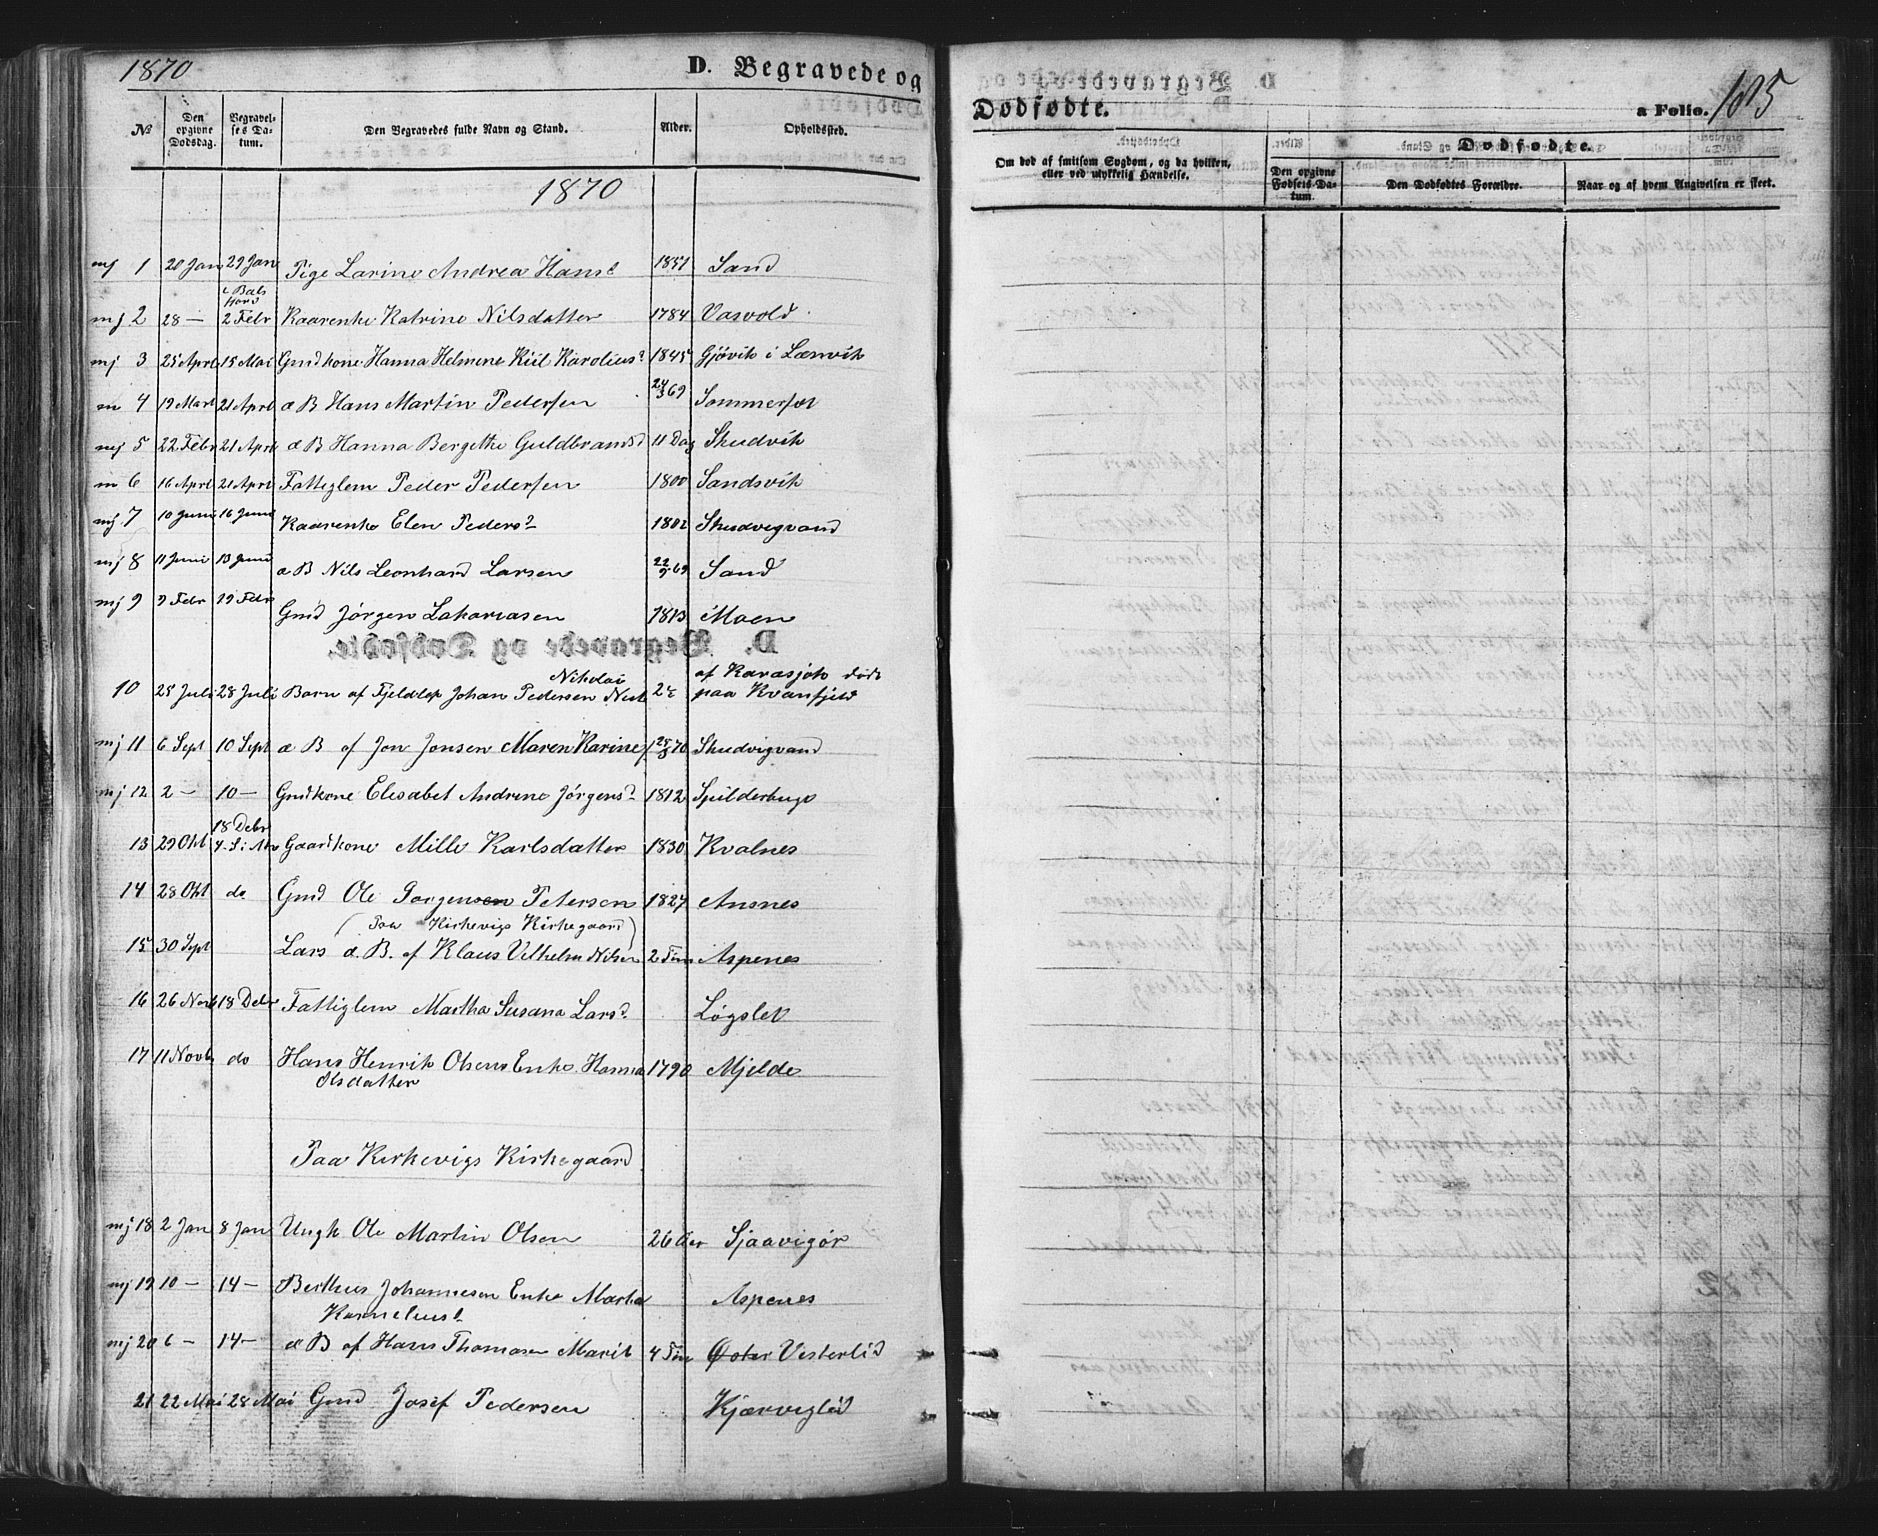 1870
D. Begravede og
№
Den opgivne Dødsdag.
Begravelses Datum.
Den Begravedes fulde Navn og Stand.
Alder.
Opholdssted.
1870
mj 1 20 Jan 29 Jan Pige Larine Andrea Hansd 1851 Sand
i Bals
fjord
mj 2 28 — 2 Febr Kaarenke Katrine Nilsdatter 1784 Vasvold
mj 3 25 Aprl 15 Mai Gmdkone Hanna Helmine Kiil Karolius? 1845 Gjøvik i Lænvik
m 4 19 Mart 21 Aprl æ B Hans Martin Pedersen 24/3 69 Sommersæt
mj 5 22 Febr 21 Aprl æ B Hanna Bergethe Guldbrandsd 11 Dag Skudvik
m 6 16 Aprl 21 Aprl Fattiglem Peder Pedersen 1800 Sandsvik
mj 7 10 Juni 16 Juni Kaarenke Elen Peders? 1802 Skudvigvand
mj 8 11 Juni 13 Juni æ B Nils Leonhard Larsen 22/9 69 Sand
mj 9 9 Febr 19 Febr Gmd Jørgen Zakariasen 1813 Moen
Nikolai
af Karasjok døde
10 25 Juli 28 Juli Barn af Fjeldlap Johan Pedersen paa Kvanfjeld
mj 11 6 Sept 10 Sept æ B af Jon Jonsen Maren Karine 70 Skudvigvand
mj 12 2 — 10 — Gmdkone Elesabet Andrine Jørgensd 1812 Spilderbugt
18 Debr
13 29 Okt Gaardkone Mille Karlsdatter 1830 Kvalnes
14 28 Okt do Gmd Ole Jørgensen Petersen 1827 Ansnes
(Paa Kirkevigs Kirkegaard)
15 30 Sept Lars æ B. af Klaus Vilhelm Nilsen 2 Tim Aspenes
16 26 Novb 18 Debr Fattiglem Martha Susana Larsd. Løgslet
17 11 Novb do Hans Henrik Olsens Enke Hanna 1790 Mjelde
Olsdatter
Paa Kirkevigs Kirkegaard
mj 18 2 Jan 8 Jan Ungk Ole Martin Olsen 26 Aar Sjaavigør
mj 19 10 — 14 — Bertheus Johannesen Enke Martha Aspenes
Korneliusd
mj 20 6 — 14 — æ B af Hans Thomasen Marit 4 Tim Øster Vesterlid
21 22 Mai 28 Mai Gmd Josef Pedersen Kjærviglid
Dødfødte.
a Folio. 105
Om død af smitsom Sygdom, og da hvilken,
eller ved ulykkelig Hændelse.
Dødfødte.
Den opgivne Fødsels-Datum.
Den Dødfødtes Forældre.
Naar og af hvem Angivelsen er skeet.